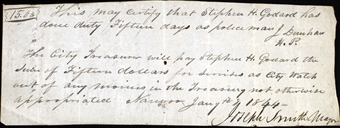 15.00 This may certify that Stephen H. Godard has
done duty Fifteen days as police may
Dunham
N. P.
The City Treasurer will pay Stephen H. Godard the
Sum of Fifteen dollars for services as City Watch
out of any monies in the Treasury not otherwise
appropriated Nauvoo Jany 1844
Joseph Smith Mayor